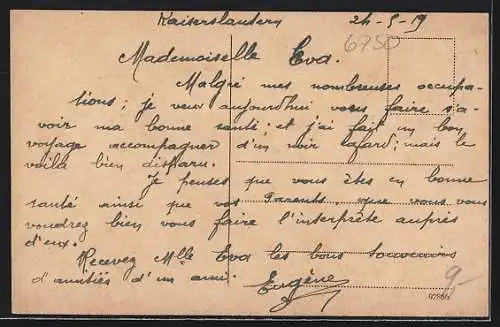 Kaiserslautern 24-5-19
6750
Mademoiselle Eva.
Malgré mes nombreuses occupa-
tions; je veux aujourd'hui vous faire s'a-
voir ma bonne santé; et j'ai fait un bon
voyage accompagner d'un noir cafard; mais le
voilà bien disparu.
Je penses que vous êtes en bonne
santé ainsi que vos Parents, que vous vous
voudrez bien vous faire l'interprète auprès
d'eux.
Recevez Mlle Eva les bons souvenirs
d'amitiés d'un ami.
Eugène
9-